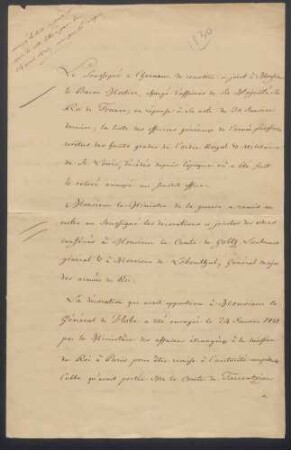 1830
Le Soussigné a l'honneur de remettre ci joint à Monsieur
le Baron Mortier, chargé d'affaires de Sa Majesté le
Roi de France, en réponse à Sa note du 30 Janvier
dernier, la liste des officiers généraux de l'armée
revêtus des hauts grades de l'ordre Royal et Militaire
de St Louis, décédés depuis l'époque où a été fait
le relevé annexé au susdit office.
Monsieur le Ministre de la guerre a remis en
outre au Soussigné les décorations ci jointes des ordres
conférés à Monsieur le Comte de Lieutenant
général & à Monsieur de Général major
des armées du Roi.
La décoration qui avait appartenu à Monsieur le
Général de a été envoyée le 24 Janvier
par le Ministère des affaires étrangères à la mission
du Roi à Paris pour être remise à l'autorité
Celle qu'avait portée Mr le Comte de